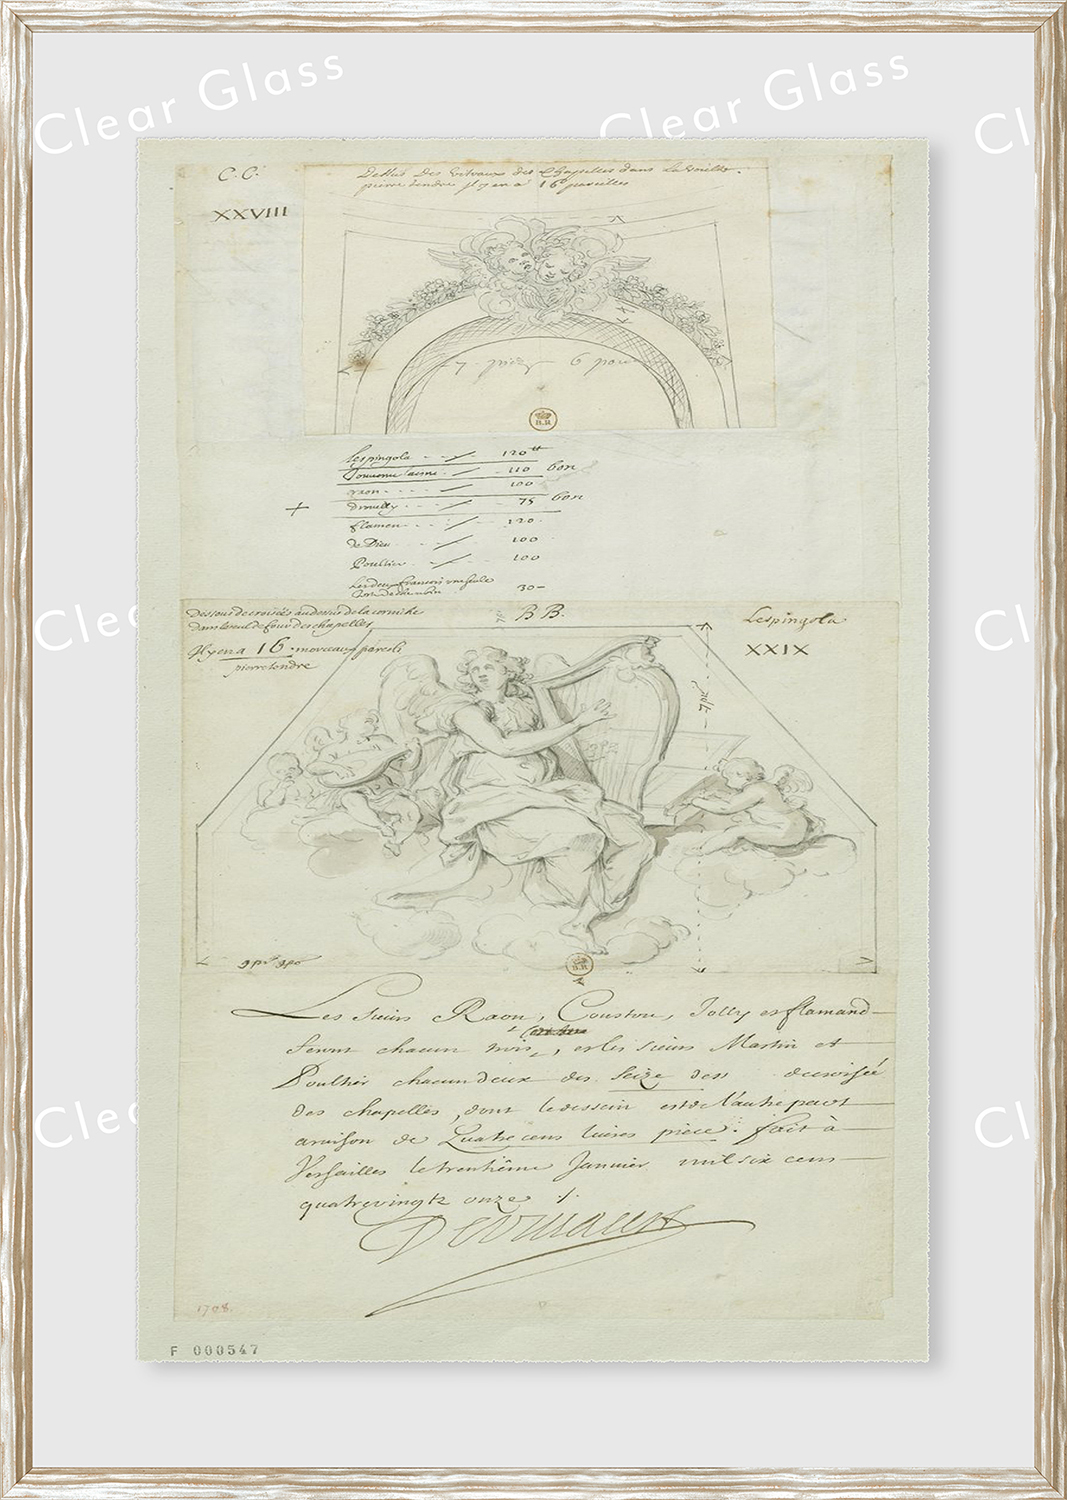 Clear Glass
Clear Glass
C. C.
XXVIII
Dessus Des Vitraux des Chapelles dans La voulte.
pierre tendre Il y en a 16 pareilles
7 pieds 6 pouces
B.R
Lespingola 120 tt
Jouvenu 110 bon
raon 100
drouilly 75 bon
+
flamen 120.
de Dieu 100
Poultier 100
Les deux francois une seule
30
Dessous de croisés au dessus de la corniche
dans le cul de four des chapelles
Il y en a 16 morceaux pareils
pierre tendre
BB.
Lespingola
XXIX
7 pi
9 pi 9 po
B.R
Les Sieurs Raon, Coustou, Jolly et flamand
feront chacun trois, et les sieurs Martin et
Poultier chacun deux des Seize dess de croisée
des chapelles, dont le dessein est de l'autre part
a raison de Quatre cens livres piece. fait à
Versailles le trentiême Janvier mil six cens
quatrevingts onze
1728.
F 000547
Clear
Clear
Clear
Cl
Cl
Cl
Cl